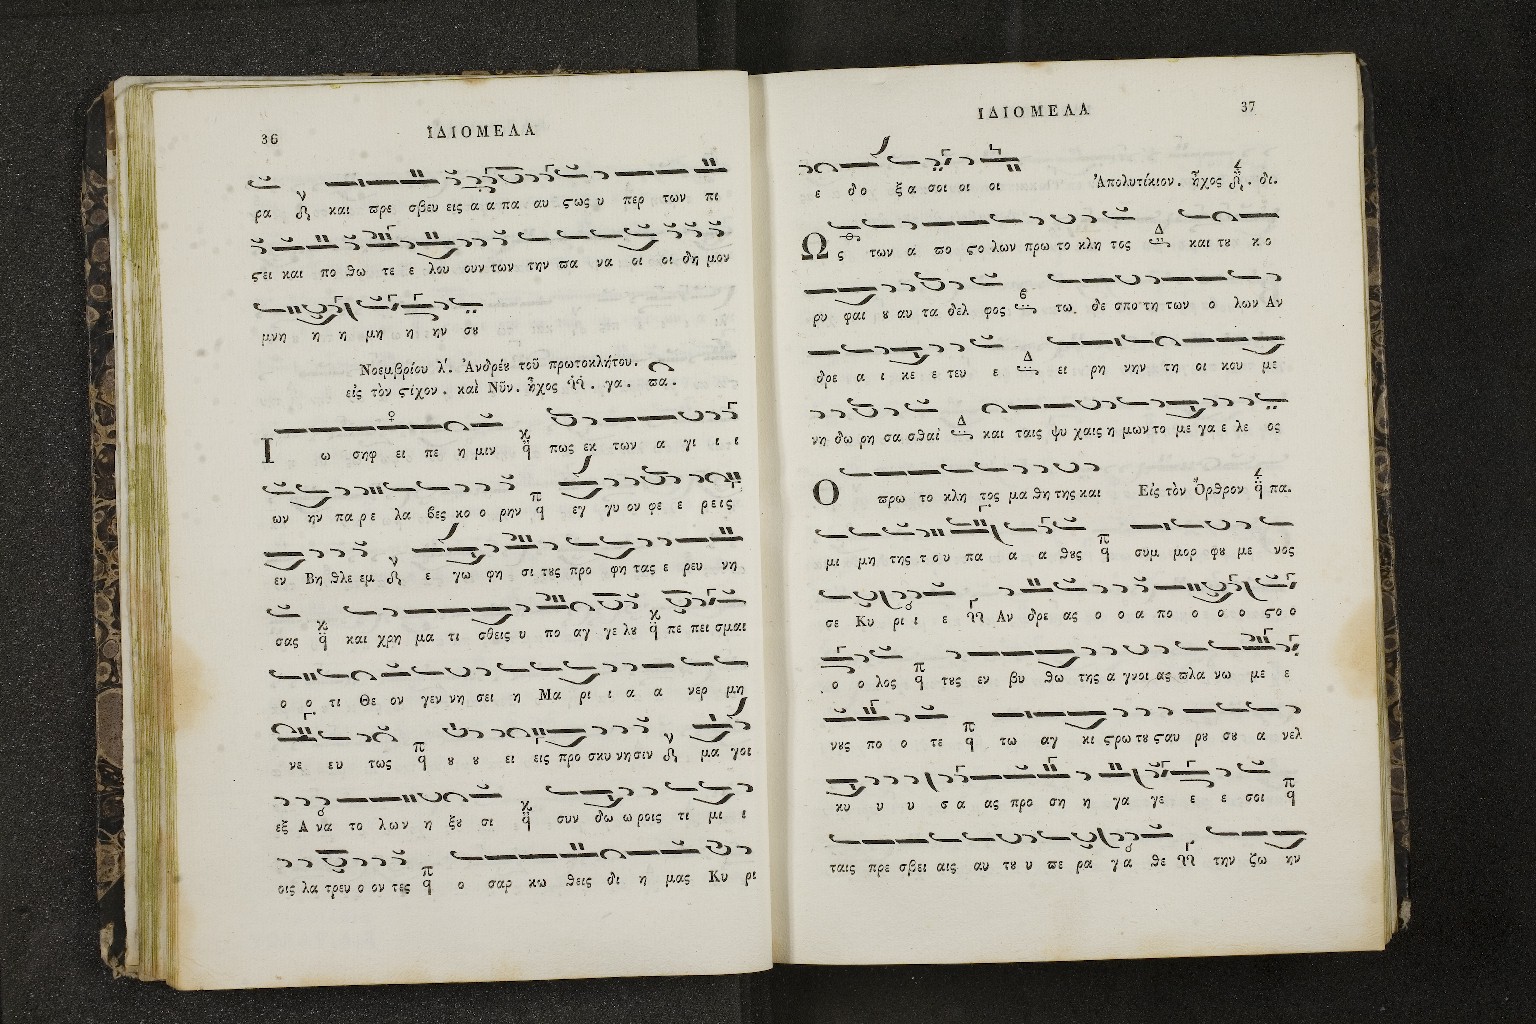 36
ἸΔΙΟΜΕΛΑ
ρα και ϖρε σβευ εις α α πα αυ ϛως υ περ των πι
ϛει και πο θω τε ε λου ουν των την ϖα να οι οι δη μον
μνη η η μη η ην σȣ
Νοεμβρίου λ΄. Ἀνδρέȣ τοῦ πρωτοκλήτου.
εἰς τὸν ϛίχον. καὶ Νῦν. ἦχος γα. ϖα.
Ι ω σηφ ει πε η μιν πως εκ των α γι ι ι
ων ην πα ρε λα βες κο ο ρην εγ γυ ον φε ε ρεις
εν Βη θλε εμ ε γω φη σι τȣς προ φη τας ε ρευ νη
σας και χρη μα τι σθεις υ πο αγ γε λȣ πε πει σμαι
ο ο τι Θε ον γεν νη σει η Μα ρι ι α α νερ μη
νε ευ τως ȣ ȣ ει εις προ σκυ νησιν μα γοι
εξ Α να το λων η ξȣ σι συν δω ω ροις τι μι ι
οις λα τρευ ο ον τες ο σαρ κω θεις δι η μας Κυ ρι
ἸΔΙΟΜΕΛΑ
37
ε δο ξα σοι οι οι Ἀπολυτίκιον. ἦχος δι.
Ω ς των α πο ϛο λων πρω το κλη τος και τȣ κο
ρυ φαι ȣ αυ τα δελ φος τω δε σπο τη των ο λων Αν
δρε α ι κε ε τευ ε ει ρη νην τη οι κου με
νη δω ρη σα σθαι και ταις ψυ χαις η μων το με γα ε λε ος
Ο ϖρω το κλη τος μα θη της και Εἰς τὸν Ὄρθρον πα.
μι μη της τ ου πα α α θȣς συμ μορ φȣ με νος
σε Κυ ρι ι ε Αν δρε ας ο ο α πο ο ο ο ϛο ο
ο ο λος τȣς εν βυ θω της α γνοι ας ϖλα νω με ε
νȣς πο ο τε τω αγ κι ϛρω τȣ ϛαυ ρȣ σȣ α νελ
κυ υ υ σ α ας προ ση η γα γε ε ε σοι
ταις πρε σβει αις αυ τȣ υ ϖε ρα γα θε την ζω ην